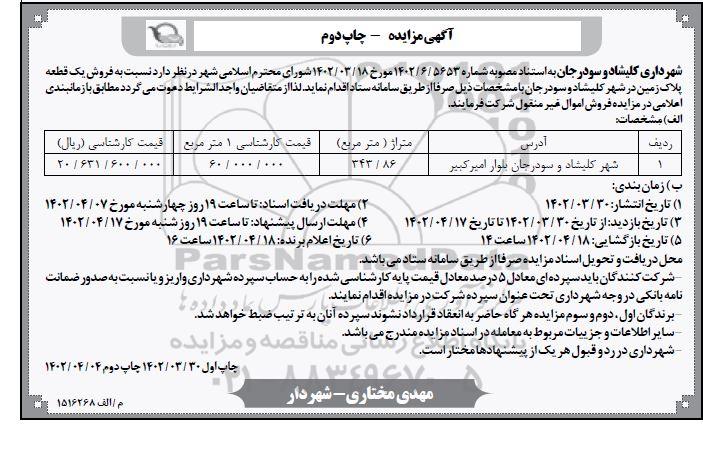 آگهی مزایده - چاپ دوم
شهرداری کلیشاد و سودرجان به استناد مصوبه شماره ۱۴۰۲/۶/۵۶۵۳ مورخ ۱۴۰۲/۰۳/۱۸ شورای محترم اسلامی شهر در نظر دارد نسبت به فروش یک قطعه
پلاک زمین در شهر کلیشاد و سودرجان با مشخصات ذیل صرفا از طریق سامانه ستاد اقدام نماید. لذا از متقاضیان واجد الشرایط دعوت می گردد مطابق با زمانبندی
اعلامی در مزایده فروش اموال غیر منقول شرکت فرمایند.
الف) مشخصات:
ردیف آدرس متراژ ( متر مربع) قیمت کارشناسی ۱ متر مربع قیمت کارشناسی (ریال)
۱ شهر کلیشاد و سودرجان بلوار امیرکبیر ۳۴۳/۸۶ ۶۰/۰۰۰/۰۰۰ ۲۰/۶۳۱/۶۰۰/۰۰۰
ب) زمان بندی:
۱) تاریخ انتشار: ۱۴۰۲/۰۳/۳۰ ۲) مهلت دریافت اسناد: تا ساعت ۱۹ روز چهارشنبه مورخ ۱۴۰۲/۰۴/۰۷
۳) تاریخ بازدید: از تاریخ ۱۴۰۲/۰۳/۳۰ تا تاریخ ۱۴۰۲/۰۴/۱۷ ۴) مهلت ارسال پیشنهاد: تا ساعت ۱۹ روز شنبه مورخ ۱۴۰۲/۰۴/۱۷
۵) تاریخ بازگشایی: ۱۴۰۲/۰۴/۱۸ ساعت ۱۴ ۶) تاریخ اعلام برنده: ۱۴۰۲/۰۴/۱۸ ساعت ۱۶
محل دریافت و تحویل اسناد مزایده صرفا از طریق سامانه ستاد می باشد.
- شرکت کنندگان باید سپرده ای معادل ۵ درصد معادل قیمت پایه کارشناسی شده را به حساب سپرده شهرداری واریز و یا نسبت به صدور ضمانت
نامه بانکی در وجه شهرداری تحت عنوان سپرده شرکت در مزایده اقدام نمایند.
- برندگان اول، دوم و سوم مزایده هر گاه حاضر به انعقاد قرارداد نشوند سپرده آنان به ترتیب ضبط خواهد شد.
- سایر اطلاعات و جزییات مربوط به معامله در اسناد مزایده مندرج می باشد.
- شهرداری در رد و قبول هر یک از پیشنهادها مختار است.
چاپ اول ۱۴۰۲/۰۳/۳۰ چاپ دوم ۱۴۰۲/۰۴/۰۴
مهدی مختاری - شهردار
م/الف ۱۵۱۶۲۶۸
ParsNamadData
پایگاه اطلاع رسانی مناقصه و مزایده
۰۲۱-۸۸۳۴۹۶۷۰-۵